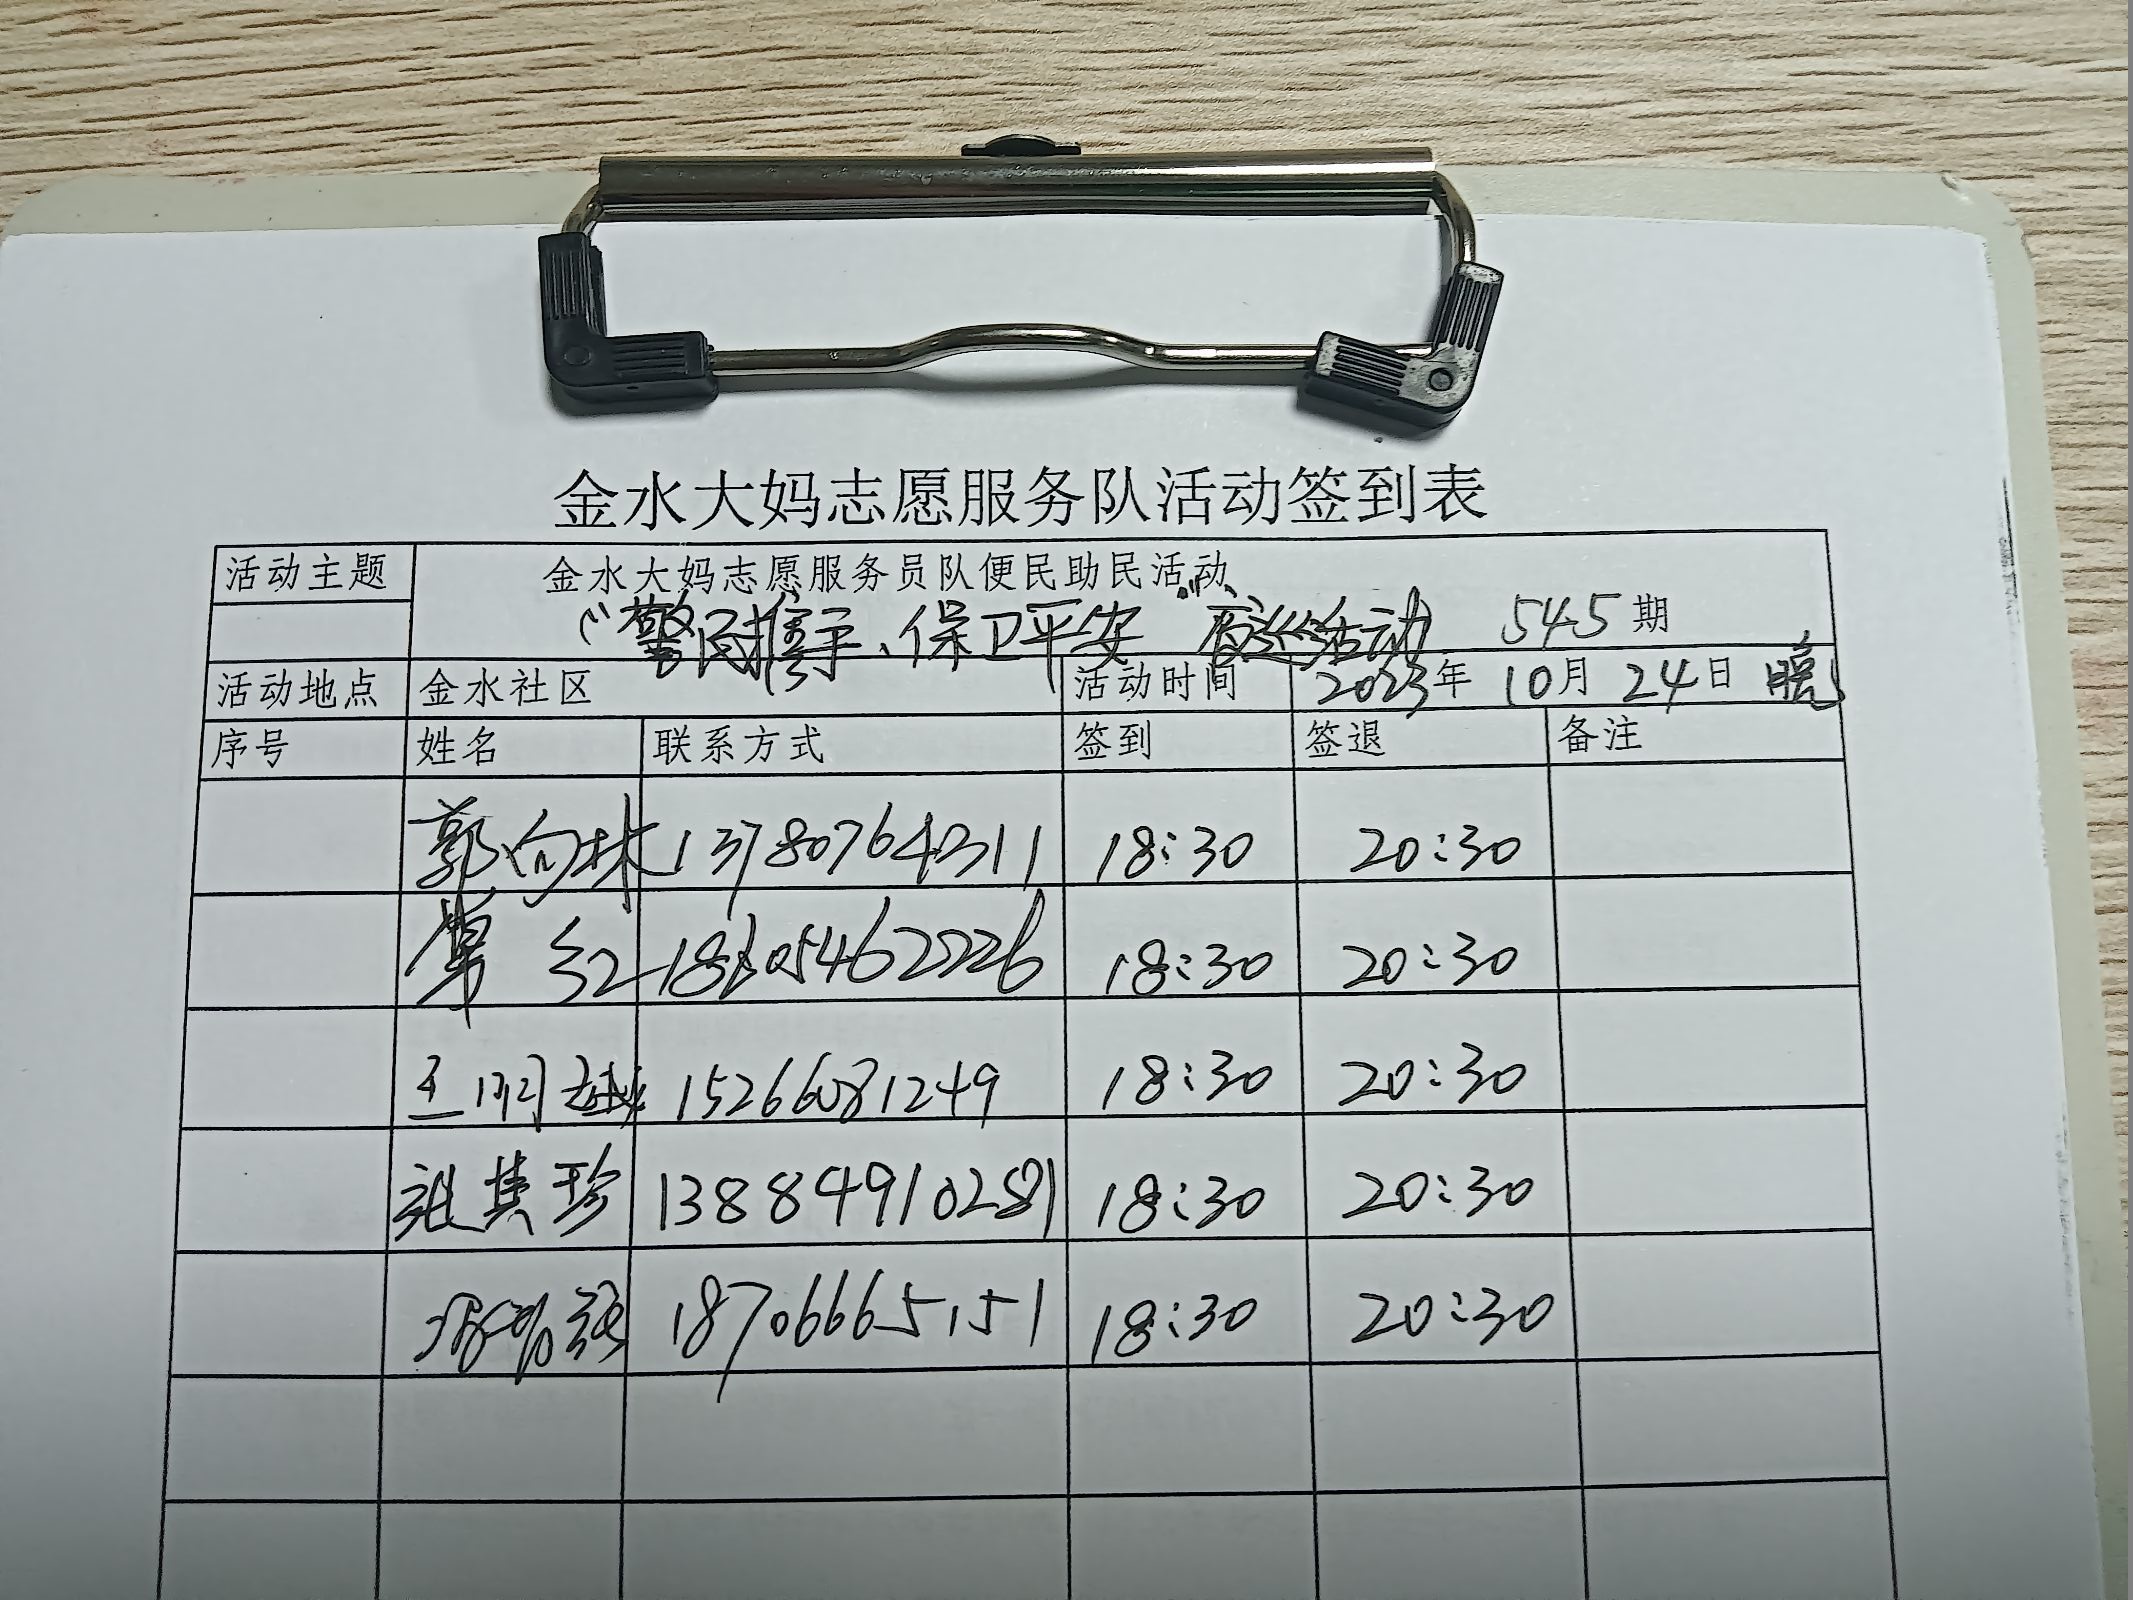 金水大妈志愿服务队活动签到表
活动主题 金水大妈志愿服务员队便民助民活动
“警民携手、保卫平安” 夜巡活动 545期
活动地点 金水社区 活动时间 2023年 10月 24日 晚
序号 姓名 联系方式 签到 签退 备注
郭向林 13780764311 18:30 20:30
单红 18605462226 18:30 20:30
王明越 15266081249 18:30 20:30
其珍 13884910281 18:30 20:30
18706665151 18:30 20:30